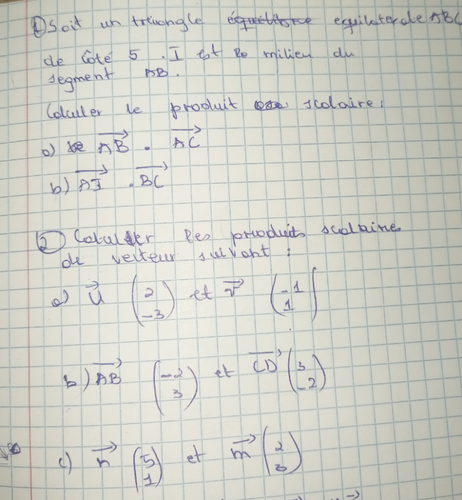 1) Soit un triangle equilaterale ABC
de côté 5 . I est le milieu du
segment AB.
Calculer le produit scalaire.
a) AB . AC
b) AI . BC
2) Calculer les produits scalaire
de vecteur suivant :
a) U (2 -3) et V (-1 1)
b) AB (-2 3) et CD (3 -2)
c) n (5 1) et m (2 3)